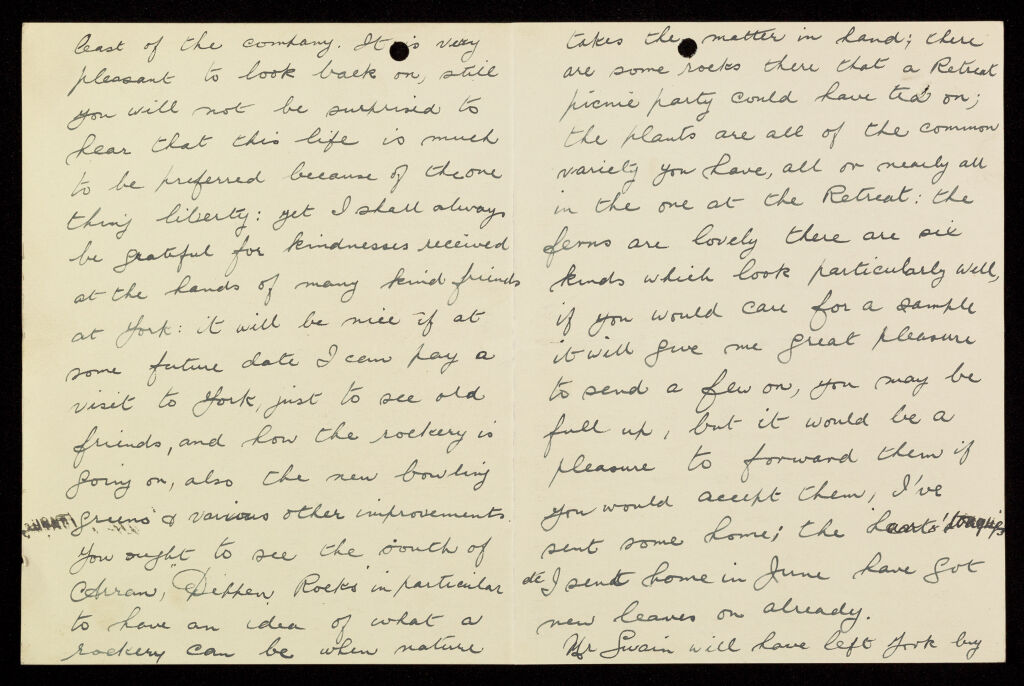 least of the company. It is very
pleasant to look back on, still
you will not be surprised to
hear that this life is much
to be preferred because of the one
thing liberty: yet I shall always
be grateful for kindnesses received
at the hands of many kind friends
at York: it will be nice if at
some future date I can pay a
visit to York, just to see old
friends, and how the rockery is
going on, also the new bowling
greens & various other improvements.
You ought to see the south of
Arran, "Dippen Rocks" in particular
to have an idea of what a
rockery can be when nature
takes the matter in hand; there
are some rocks there that a Retreat
picnic party could have tea on;
the plants are all of the common
variety you have, all or nearly all
in the one at the Retreat: the
ferns are lovely there are six
kinds which look particularly well,
if you would care for a sample
it will give me great pleasure
to send a few on, you may be
full up, but it would be a
pleasure to forward them if
you would accept them, I've
sent some home; the harts' tongues
I sent home in June have got
new leaves on already.
Mr Swain will have left York by